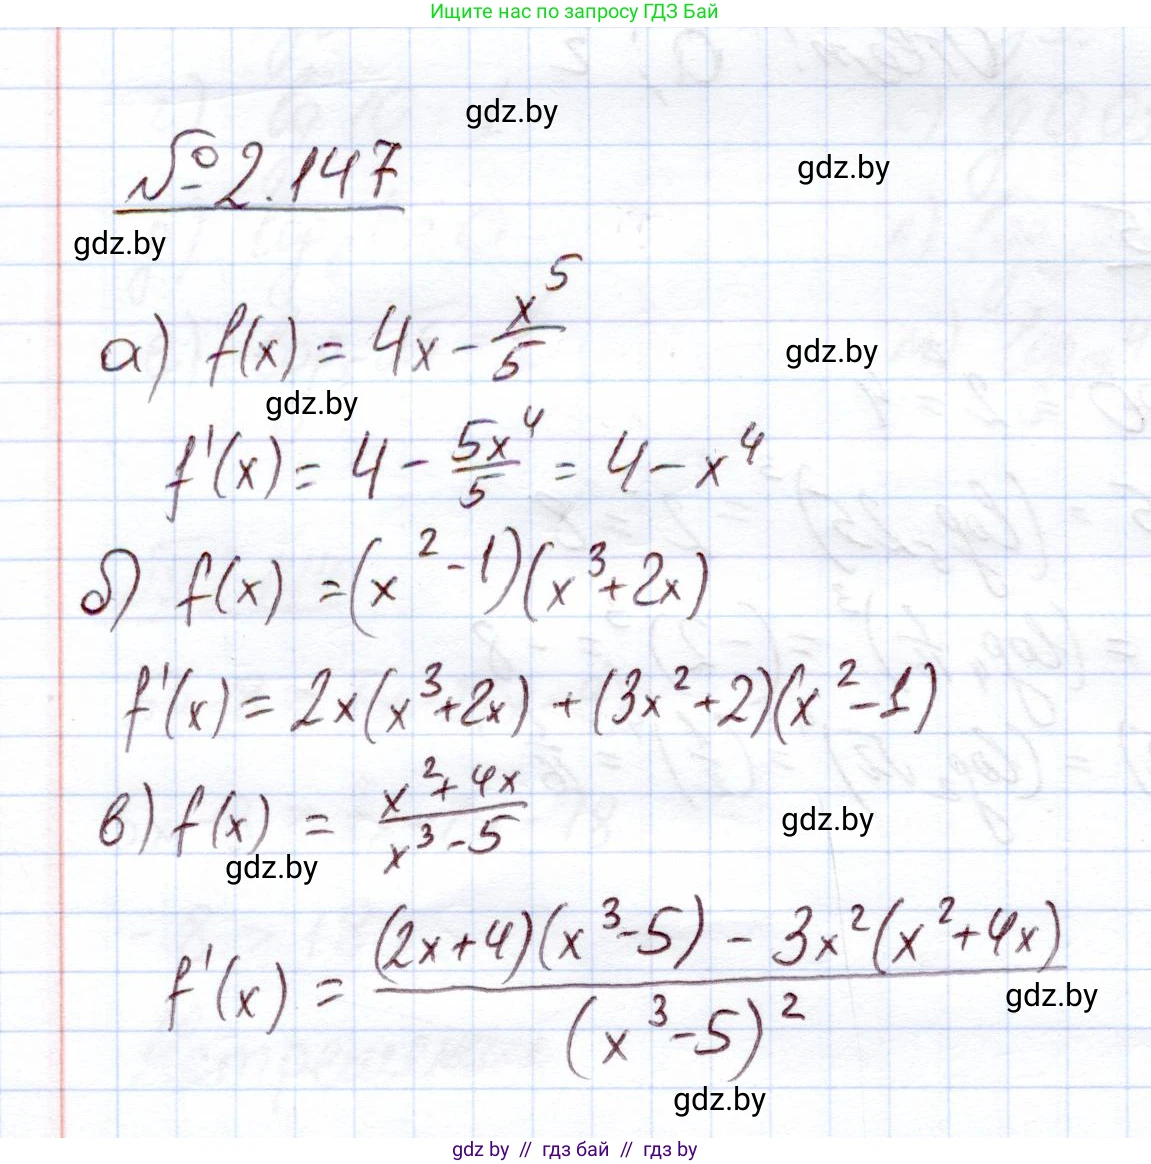 Ищите нас по запросу ГДЗ Бай
gdz.by
№ 2.147
gdz.by
gdz.by
а) f(x) = 4x - x^5/5
gdz.by
gdz.by
f'(x) = 4 - 5x^4/5 = 4 - x^4
б) f(x) = (x^2 - 1)(x^3 + 2x)
f'(x) = 2x(x^3 + 2x) + (3x^2 + 2)(x^2 - 1)
в) f(x) = (x^2 + 4x)/(x^3 - 5)
gdz.by
gdz.by
f'(x) = ((2x + 4)(x^3 - 5) - 3x^2(x^2 + 4x))/(x^3 - 5)^2
gdz.by
gdz.by
gdz by // гдз бай // гдз by